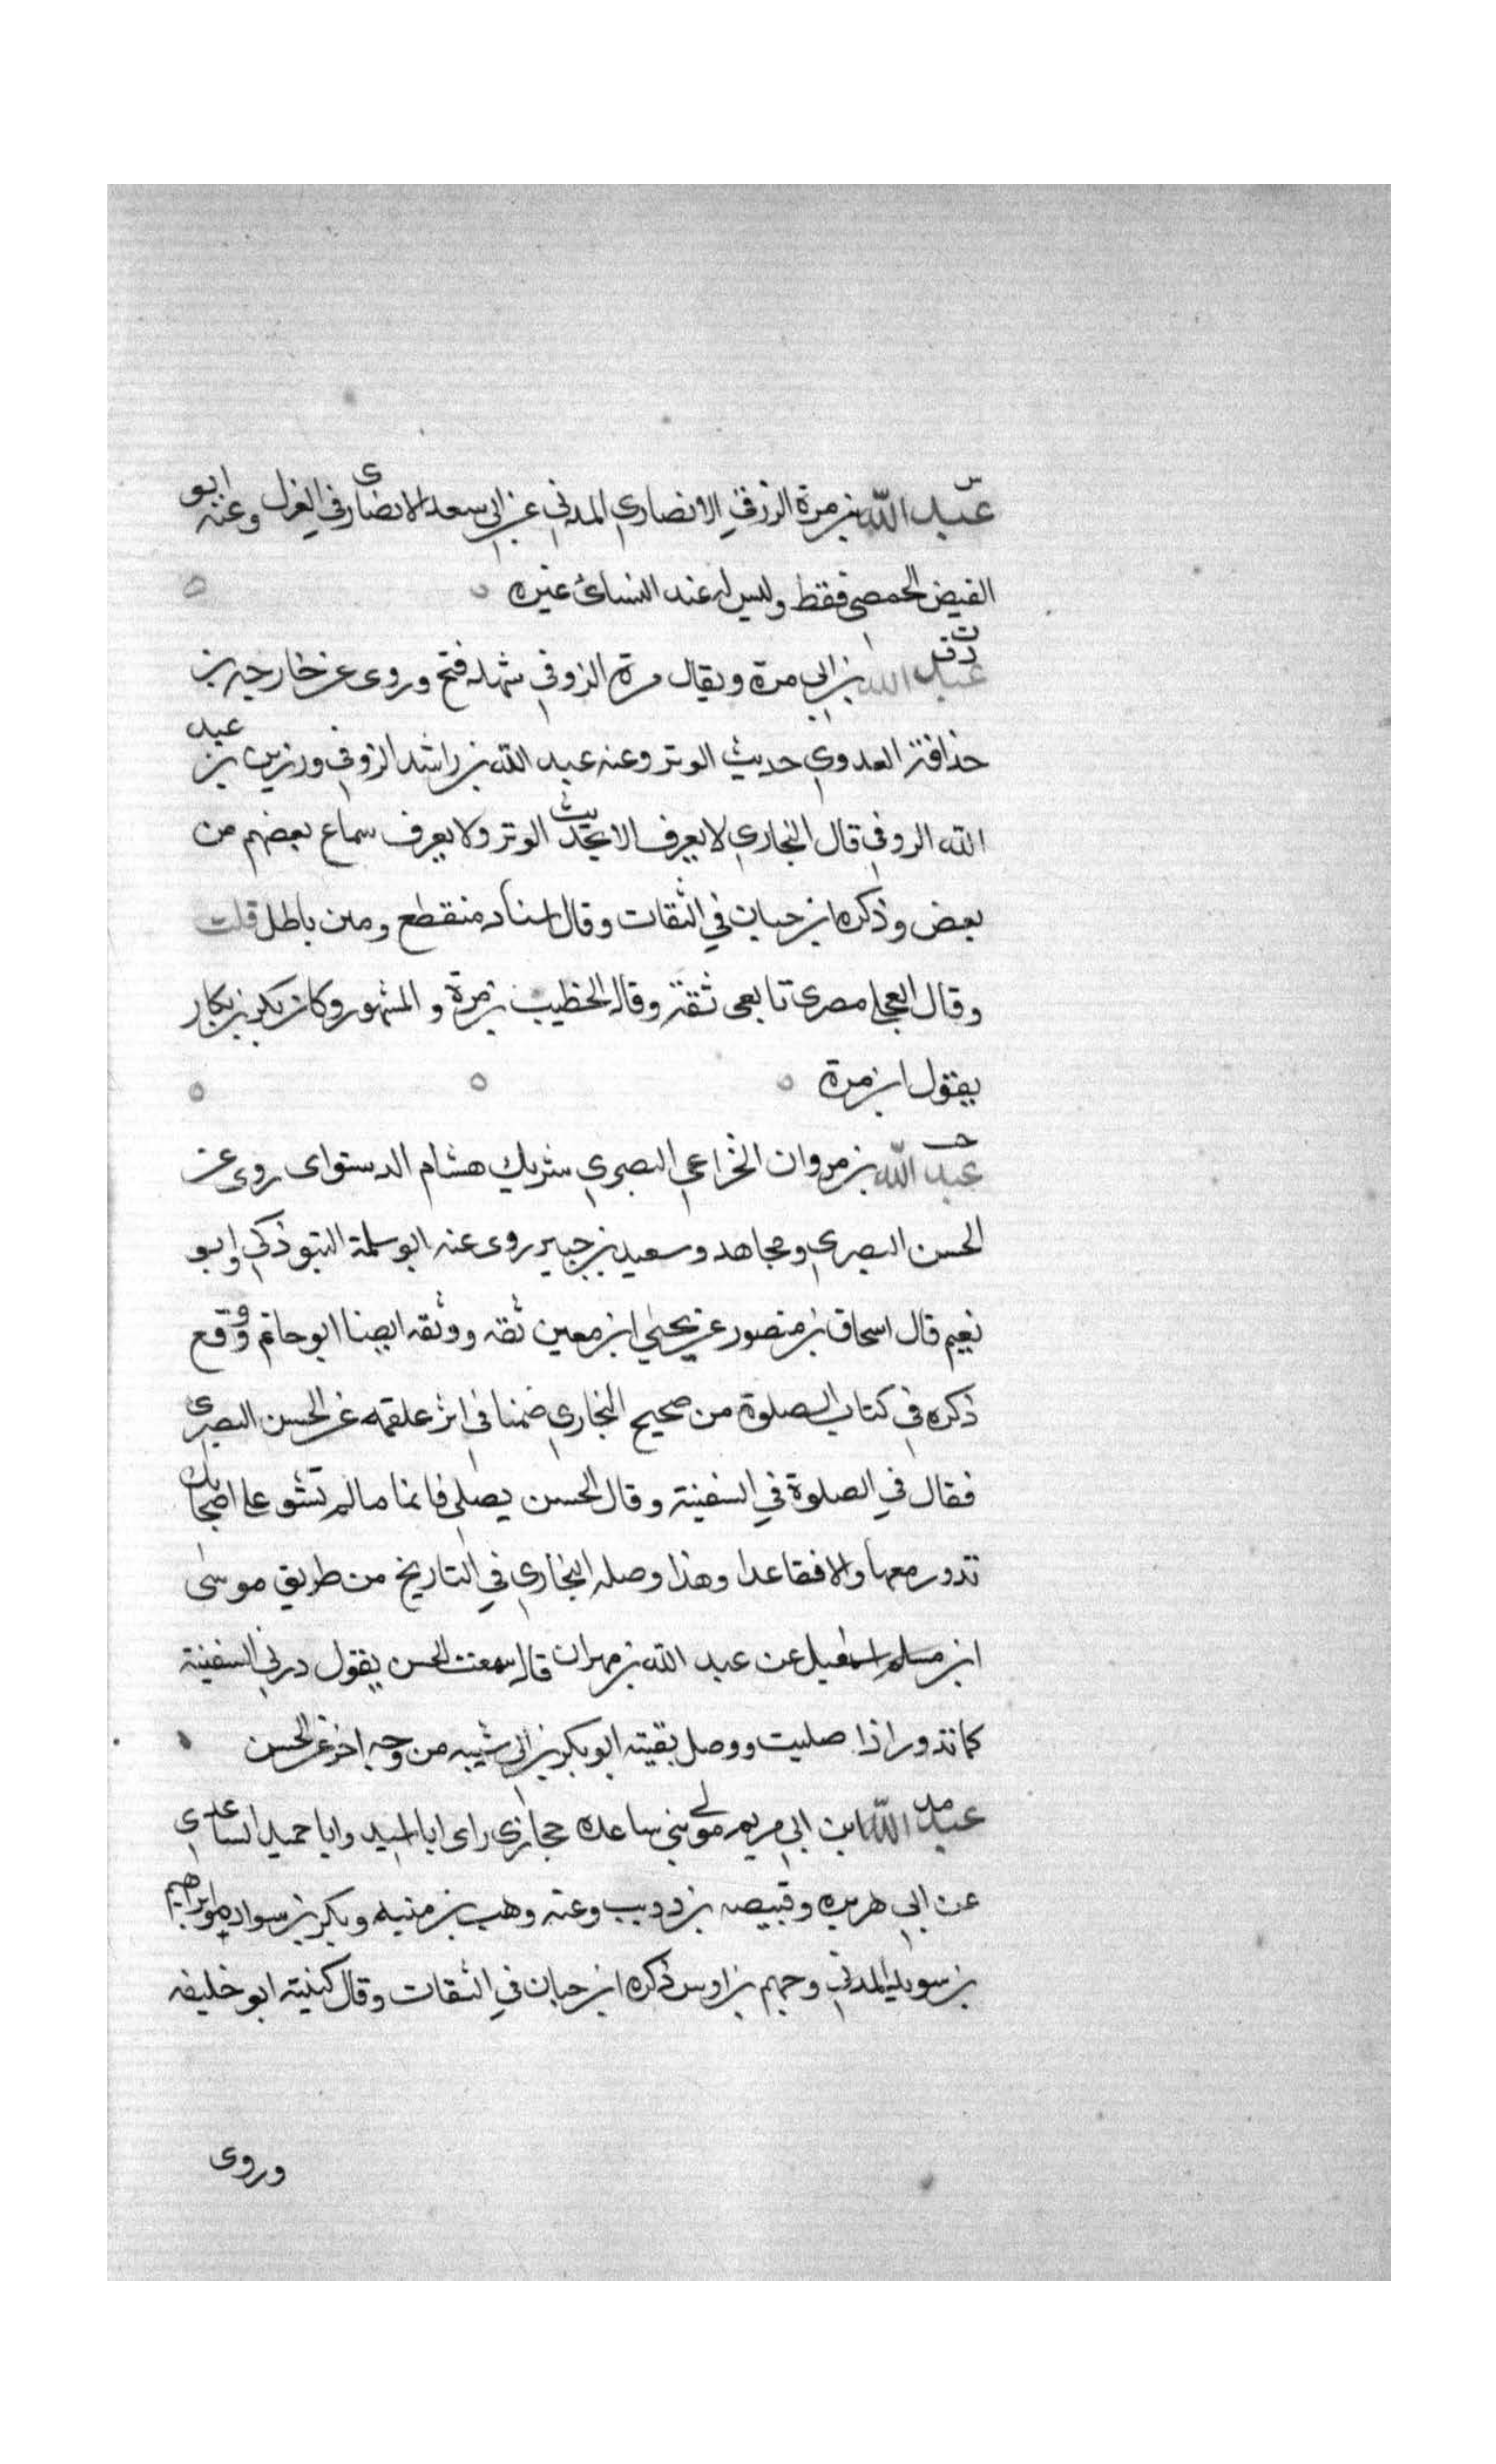 س
عبد الله بن مرة الزرقي الانصاري المدني عن ابي سعد الانصاري في العزل وعنه ابو
الفيض الحمصي فقط وليس له عند النسائى غيره
د ت ق
عبد الله بن ابي مرة ويقال مرة الزوفي شهد فتح وروى عن خارجه بن
حذافة العدوي حديث الوتر وعنه عبد الله بن راشد الزوفي ورزين بن عبد
الله الزوفي قال البخاري لا يعرف الا بحديث الوتر ولا يعرف سماع بعضهم من
بعض وذكره ابن حبان في الثقات وقال اسناد منقطع ومتن باطل قلت
وقال العجلي مصرى تابعى ثقة وقال الخطيب بن مرة والمشهور وكان بكر بن بكار
يقول ابن مرة
خت
عبد الله بن مروان الخزاعي البصري شريك هشام الدستواى روى عن
الحسن البصري ومجاهد وسعيد بن جبير روى عنه ابو سلمة التبوذكي وابو
نعيم قال اسحاق بن منصور عن يحيي ابن معين ثقه ووثقه ايضا ابو حاتم ووقع
ذكره في كتاب الصلوة من صحيح البخاري ضمنا في اثر علقمه عن الحسن البصرى
فقال في الصلوة في السفينة وقال الحسن يصلى قائما ما لم تشق على اصحابك
تدور معها والا فقاعدا وهذا وصله البخاري في التاريخ من طريق موسى
ابن مسلم اسمعيل عن عبد الله بن مهران قال سمعت الحسن يقول در في السفينة
كما تدور اذا صليت ووصل بقيته ابو بكر بن ابي شيبه من وجه اخر عن الحسن
مد
عبد الله ابن ابي مريم مولى بني ساعده حجازي راى ابا اسيد وابا حميد الساعدى
عن ابي هريره وقبيصه بن ذويب وعنه وهب بن منبه وبكر بن سواده وابراهيم
بن سويد المدني وجهم بن اوس ذكره ابن حبان في الثقات وقال كنيته ابو خليفه
وروى